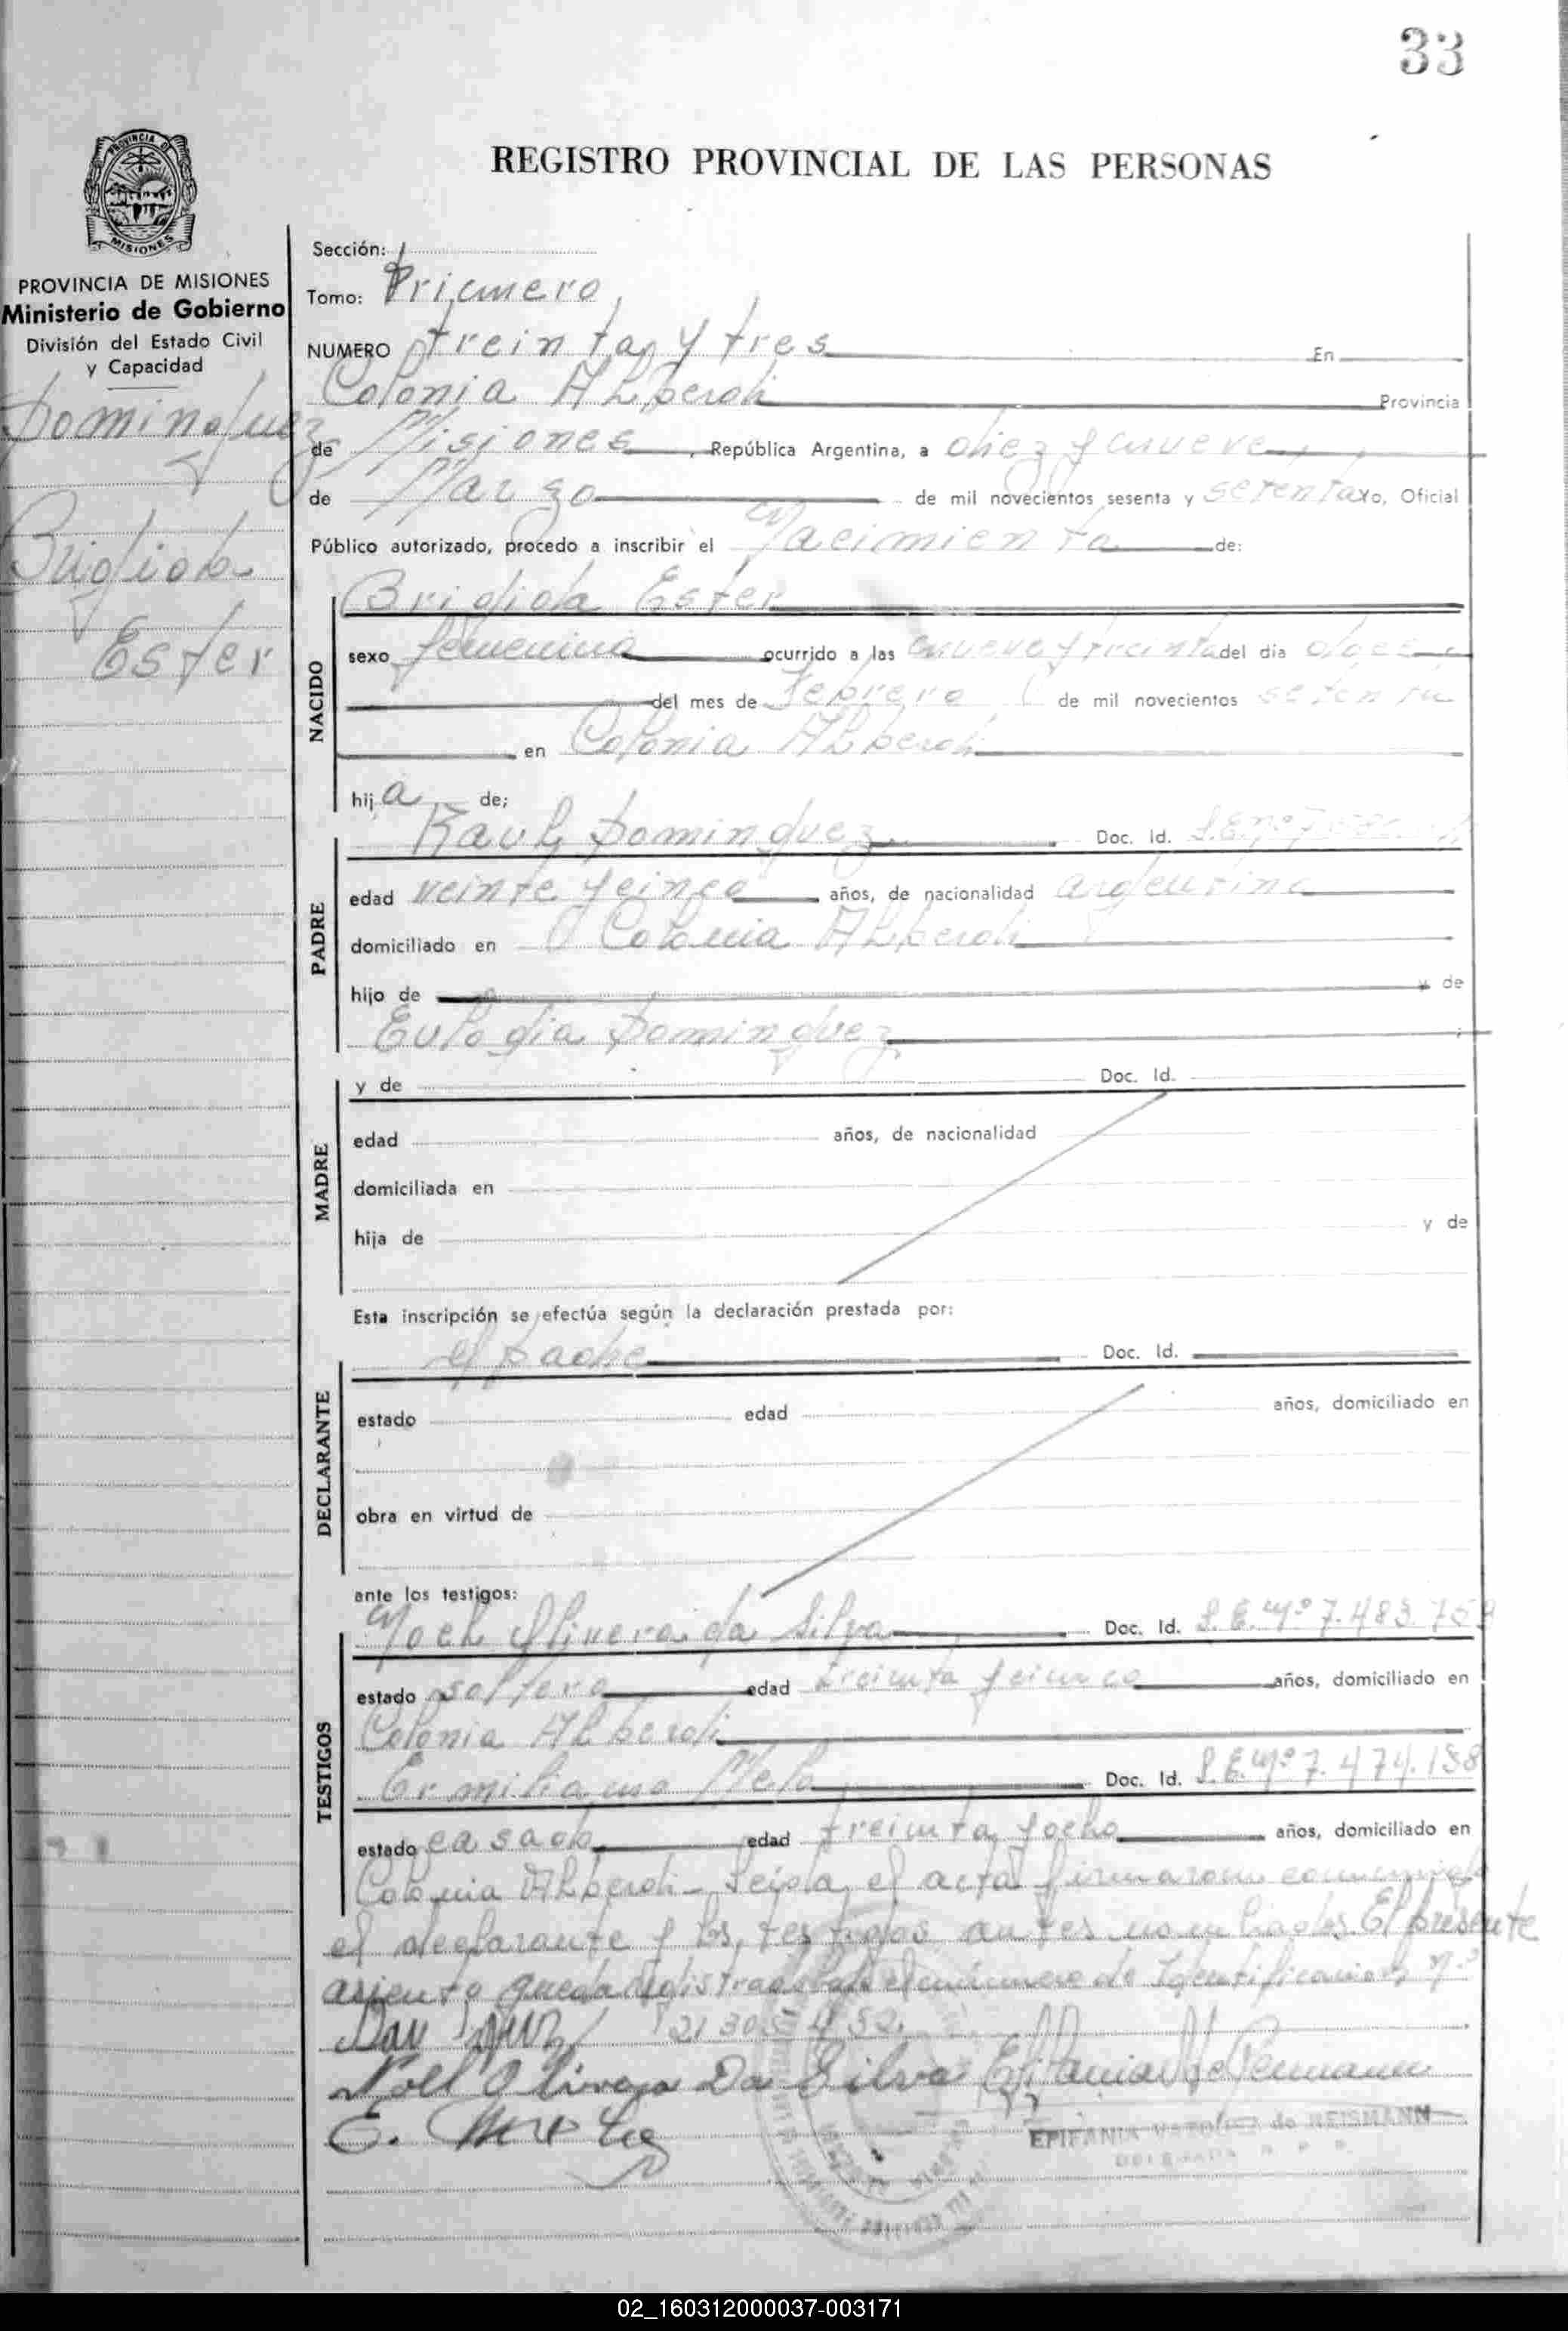 33
PROVINCIA DE
MISIONES
REGISTRO PROVINCIAL DE LAS PERSONAS
PROVINCIA DE MISIONES
Ministerio de Gobierno
División del Estado Civil
y Capacidad
Dominguez
Brigida
Ester
Sección:
Tomo: Primero
NUMERO treinta y tres En
Colonia Alberdi Provincia
de Misiones, República Argentina, a diez y nueve
de Marzo de mil novecientos sesenta y setenta, Oficial
Público autorizado, procedo a inscribir el Nacimiento de:
NACIDO
Brigida Ester
sexo femenino ocurrido a las nueve y treinta del dia
del mes de Febrero de mil novecientos setenta
en Colonia Alberdi
hija de;
PADRE
Raul Dominguez Doc. Id. L.E. nº
edad veinte y cinco años, de nacionalidad argentina
domiciliado en Colonia Alberdi
hijo de y de
Eulogia Dominguez
MADRE
y de Doc. Id.
edad años, de nacionalidad
domiciliada en
hija de y de
Esta inscripción se efectúa según la declaración prestada por:
DECLARANTE
el Padre Doc. Id.
estado edad años, domiciliado en
obra en virtud de
ante los testigos:
TESTIGOS
Noel Olivera da Silva Doc. Id. L.E. Nº 7.483.759
estado soltero edad treinta y cinco años, domiciliado en
Colonia Alberdi
Ermiliano Melo Doc. Id. L.E. Nº 7.474.138
estado casado edad treinta y ocho años, domiciliado en
Colonia Alberdi - Leida el acta firmaron conmigo
el declarante y los testigos antes nombrados. El presente
asiento queda registrado bajo el número de Identificación nº
21.305.432.
Noel Olivera Da Silva
E. Melo
EPIFANIA de REISMANN
02_160312000037-003171